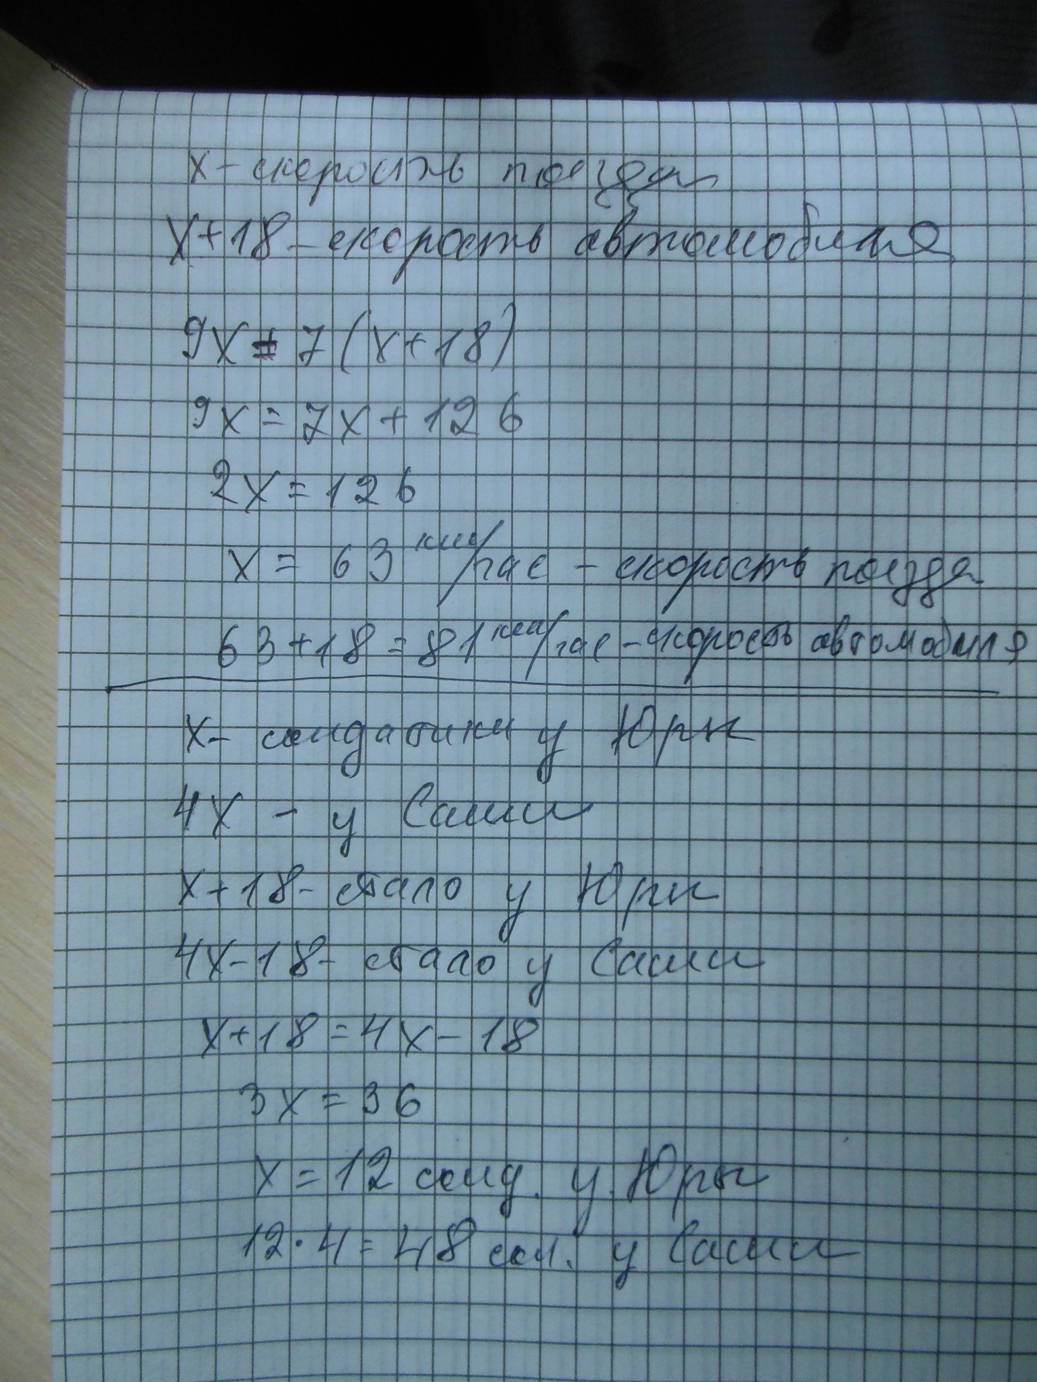 х - скорость поезда
х+18 - скорость автомобиля
9х = 7(х+18)
9х = 7х + 126
2х = 126
х = 63 км/час - скорость поезда
63+18 = 81 км/час - скорость автомобиля
х - солдатики у Юры
4х - у Саши
х+18 - стало у Юры
4х-18 - стало у Саши
х+18 = 4х - 18
3х = 36
х = 12 солд. у Юры
12·4 = 48 сол. у Саши